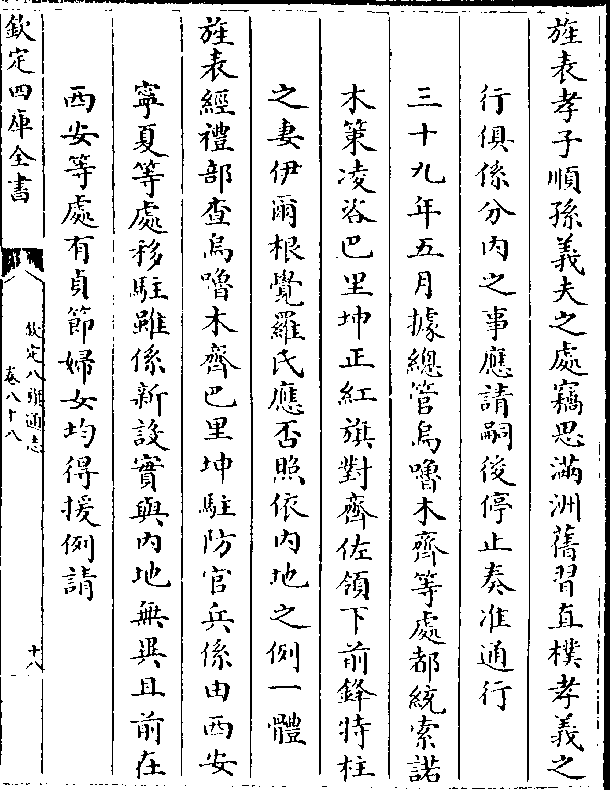 旌表孝子順孫義夫之處竊思滿洲舊習直樸孝義之
行俱係分内之事應請嗣後停止奏准通行
三十九年五月據總管烏嚕木齊等處都統索諾
木策凌咨巴里坤正紅旗對齊佐領下前鋒特柱
之妻伊爾根覺羅氏應否照依内地之例一體
旌表經禮部查烏嚕木齊巴里坤駐防官兵係由西安
寧夏等處移駐雖係新設實與内地無異且前在
西安等處有貞節婦女均得援例請
欽定四庫全書
欽定八旗通志
卷八十八
十八